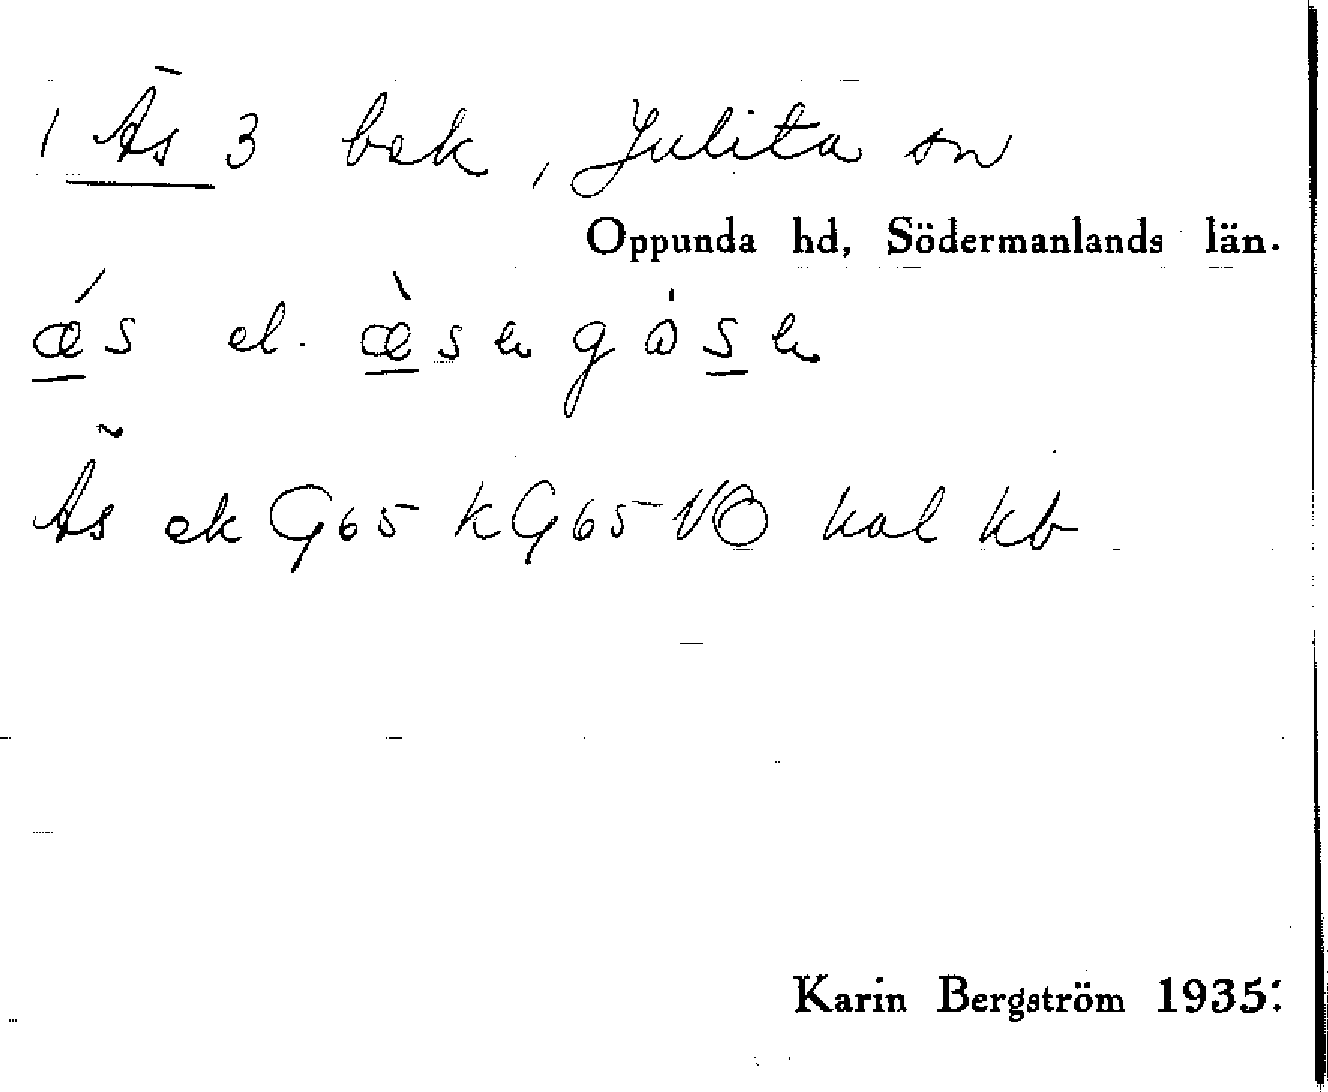 1 Äs 3 bek, Julita sn
Oppunda hd, Södermanlands län.
ǽs el. æ̀sn gǻsn
Äs ek G65 kG65 VO hal kb
Karin Bergström 1935.